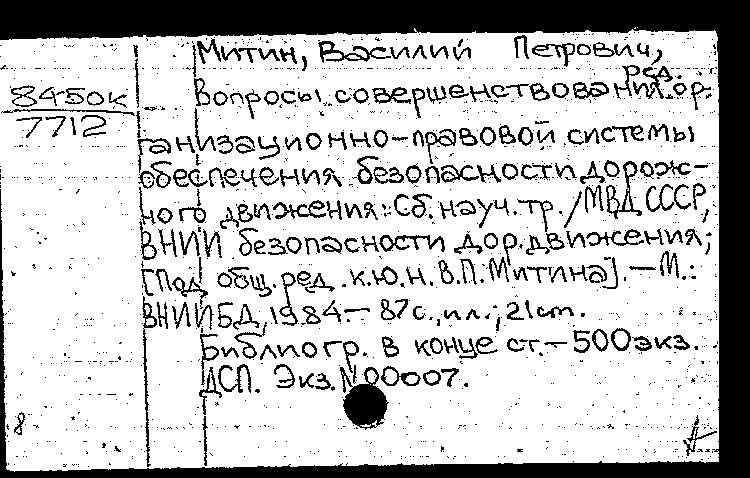 Митин, Василий Петрович,
ред.
8450к
7712
Вопросы совершенствования ор-
ганизационно-правовой системы
обеспечения безопасности дорож-
ного движения: Сб. науч. тр. / МВД СССР,
ВНИИ безопасности дор. движения;
[Под общ. ред. к.ю.н. В.П. Митина]. — М.:
ВНИИБД, 1984. — 87с., ил.; 21 cm.
Библиогр. в конце ст. — 500экз.
ДСП. Экз. №00007.
8